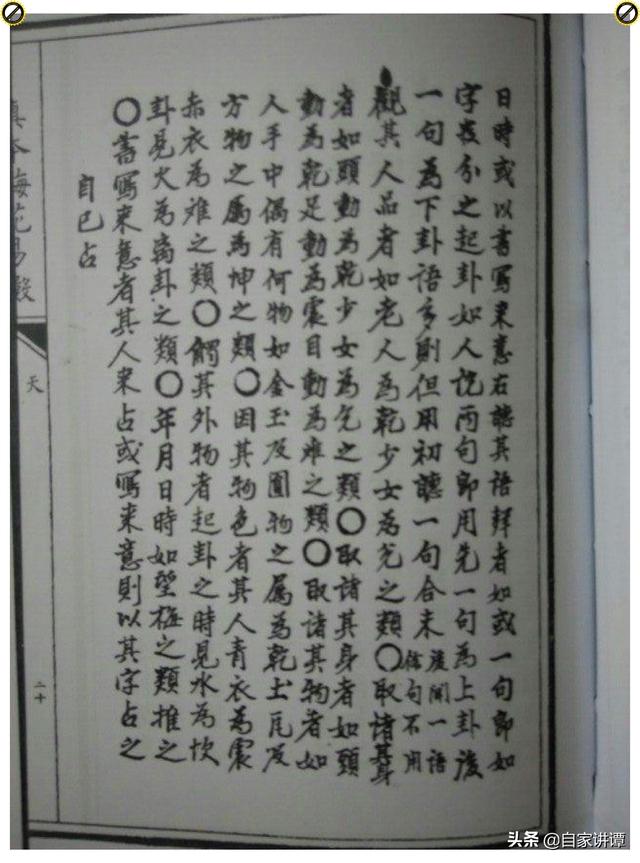 日時或以書寫来意右聽其語釋者如或一句即如
字發分之起卦如人說兩句即用先一句為上卦後
一句為下卦語多則但用初聽一句合末後聞一語
餘句不用
觀其人品者如老人為乾少女為兌之類〇取諸其身
者如頭動為乾少女為兌之類〇取諸其身者如頭
動為乾足動為震目動為难之類〇取諸其物者如
人手中偶有何物如金玉及圓物之属為乾土瓦及
方物之属為坤之類〇因其物色者其人青衣為震
赤衣為难之類〇觸其外物者起卦之時見水為坎
卦見火為离卦之類〇年月日時如望極之類推之
〇書寫来意者其人来占或寫来意則以其字占之
自已占
真本梅花易數
天
二十
头条 @自家讲谭